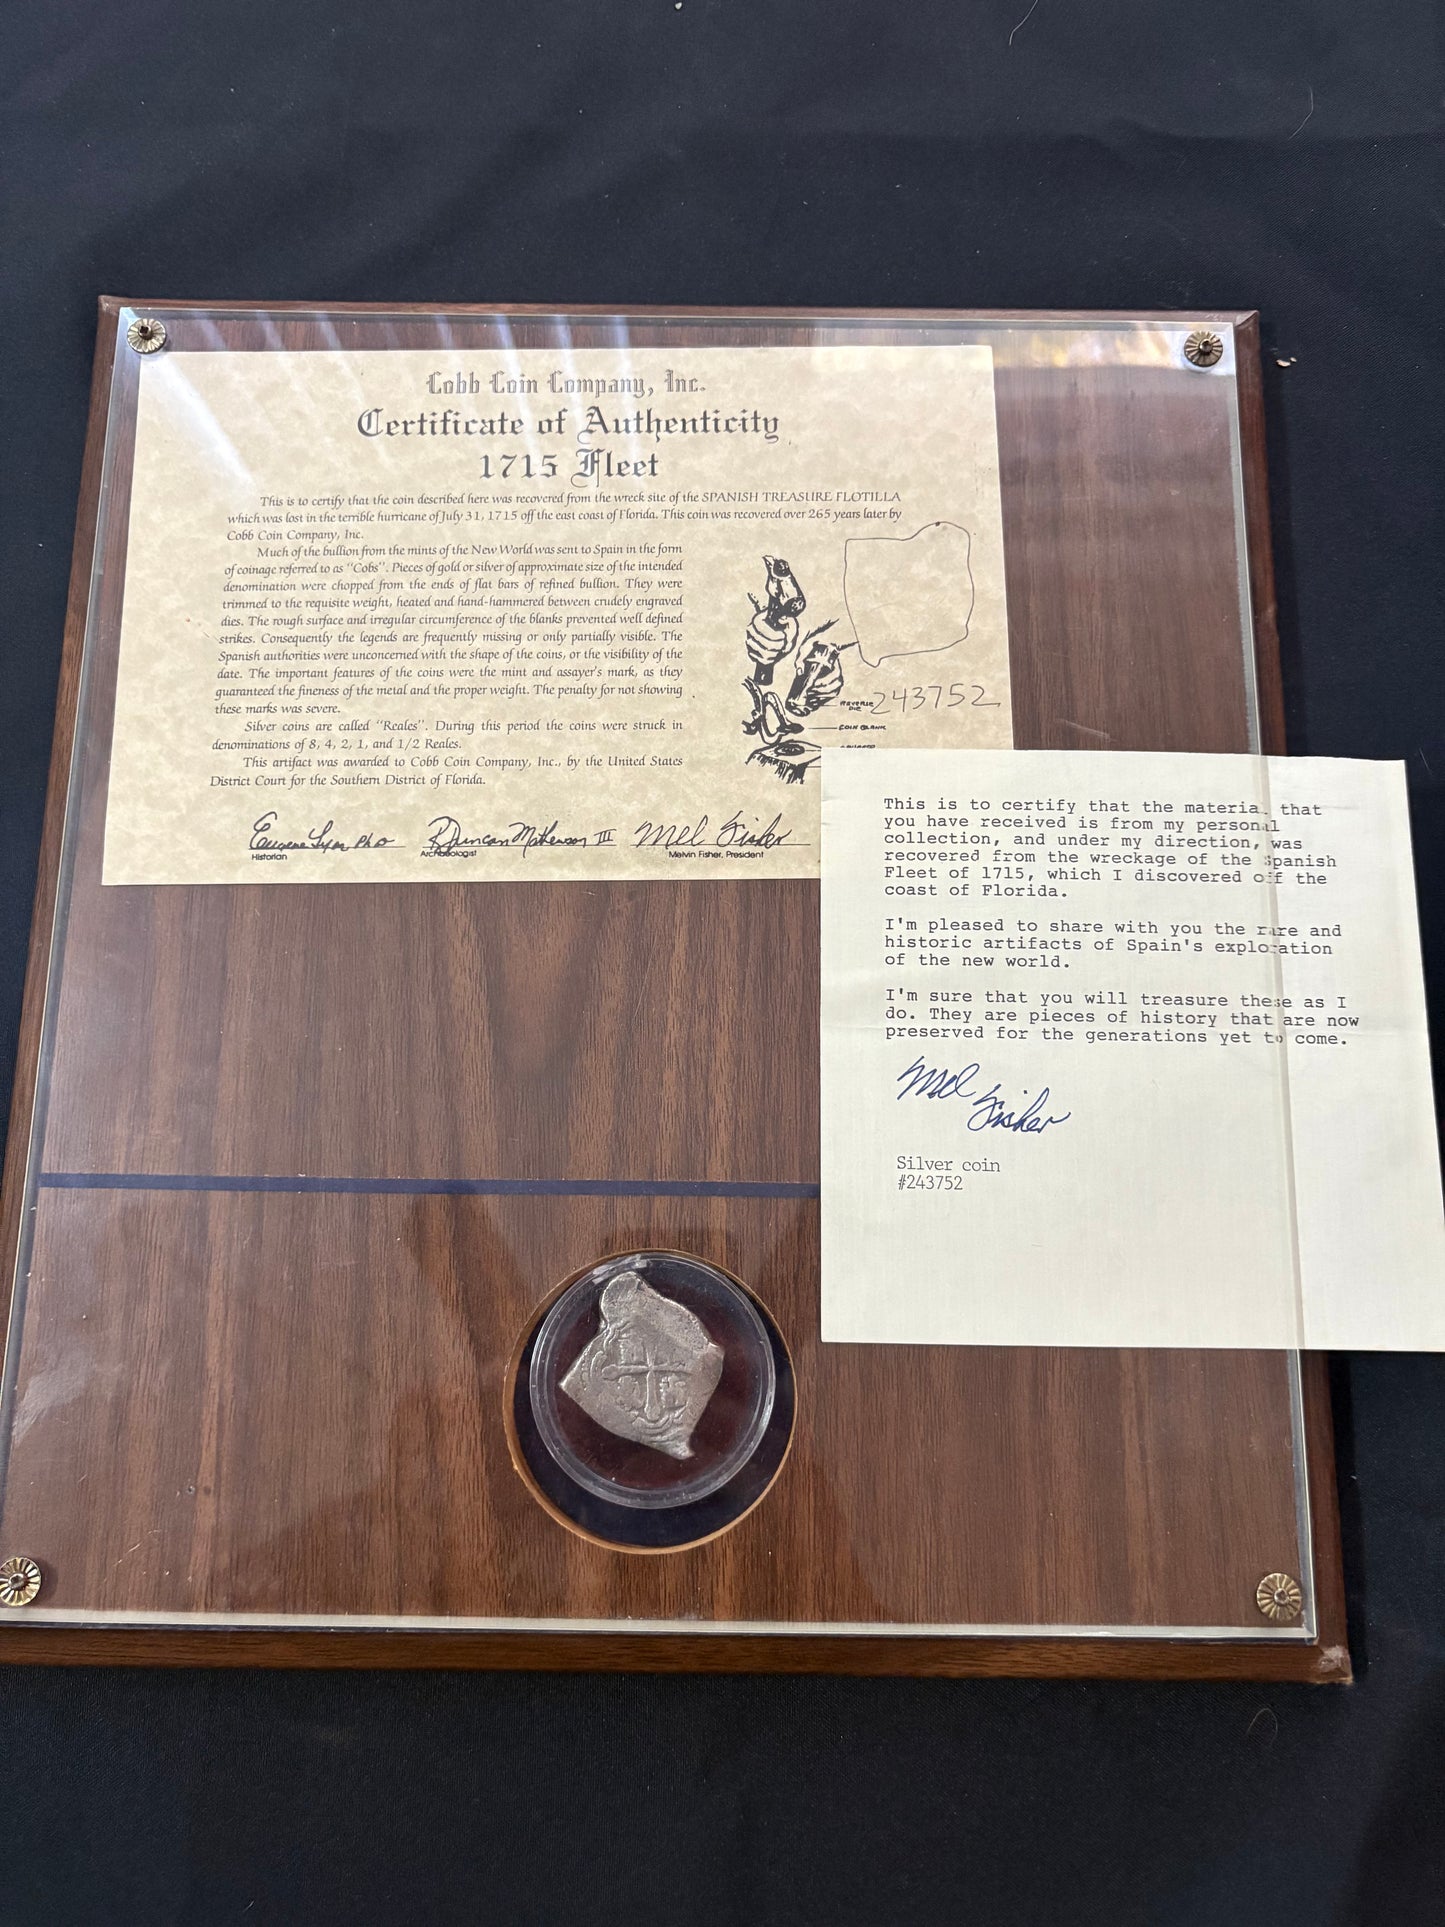 Cobb Coin Company, Inc.
Certificate of Authenticity
1715 Fleet
This is to certify that the coin described here was recovered from the wreck site of the SPANISH TREASURE FLOTILLA
which was lost in the terrible hurricane of July 31, 1715 off the east coast of Florida. This coin was recovered over 265 years later by
Cobb Coin Company, Inc.
Much of the bullion from the mints of the New World was sent to Spain in the form
of coinage referred to as "Cobs". Pieces of gold or silver of approximate size of the intended
denomination were chopped from the ends of flat bars of refined bullion. They were
trimmed to the requisite weight, heated and hand-hammered between crudely engraved
dies. The rough surface and irregular circumference of the blanks prevented well defined
strikes. Consequently the legends are frequently missing or only partially visible. The
Spanish authorities were unconcerned with the shape of the coins, or the visibility of the
date. The important features of the coins were the mint and assayer's mark, as they
guaranteed the fineness of the metal and the proper weight. The penalty for not showing
these marks was severe.
Silver coins are called "Reales". During this period the coins were struck in
denominations of 8, 4, 2, 1, and 1/2 Reales.
This artifact was awarded to Cobb Coin Company, Inc., by the United States
District Court for the Southern District of Florida.
REVERSE
DIE
243752
COIN BLANK
Eugene Lyon PhD
Historian
R Duncan Mathewson III
Archaeologist
Mel Fisher
Melvin Fisher, President
This is to certify that the material that
you have received is from my personal
collection, and under my direction, was
recovered from the wreckage of the Spanish
Fleet of 1715, which I discovered off the
coast of Florida.
I'm pleased to share with you the rare and
historic artifacts of Spain's exploration
of the new world.
I'm sure that you will treasure these as I
do. They are pieces of history that are now
preserved for the generations yet to come.
Mel Fisher
Silver coin
#243752